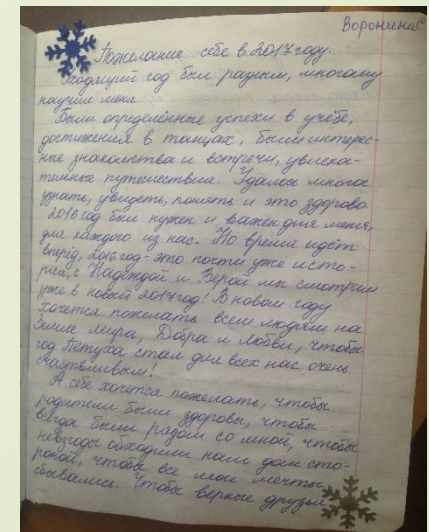 Воронина
Пожелание себе в 2017 году.
Уходящий год был разным, многому
научил меня.
Были определённые успехи в учёбе,
достижения в танцах, были интерес-
ные знакомства и встречи, увлека-
тельные путешествия. Удалось многое
узнать, увидеть, понять и это здорово
2016 год был нужен и важен для меня,
для каждого из нас. Но время идёт
вперёд, 2016 год - это почти уже исто-
рия, с Надеждой и Верой мы смотрим
уже в новый 2017 год! В новом году
хочется пожелать всем людям на
Земле Мира, Добра и Любви, чтобы
год Петуха стал для всех нас очень
счастливым!
А себе хочется пожелать, чтобы
родители были здоровы, чтобы
всегда были рядом со мной, чтобы
невзгоды обходили наш дом сто-
роной, чтобы все мои мечты
сбывались. Чтобы верные друзья